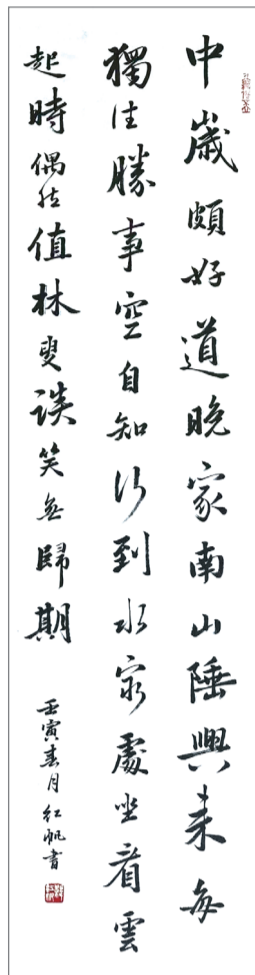 中歲頗好道晚家南山陲興來每
獨往勝事空自知行到水窮處坐看雲
起時偶然值林叟談笑無歸期
壬寅春月紅帆書